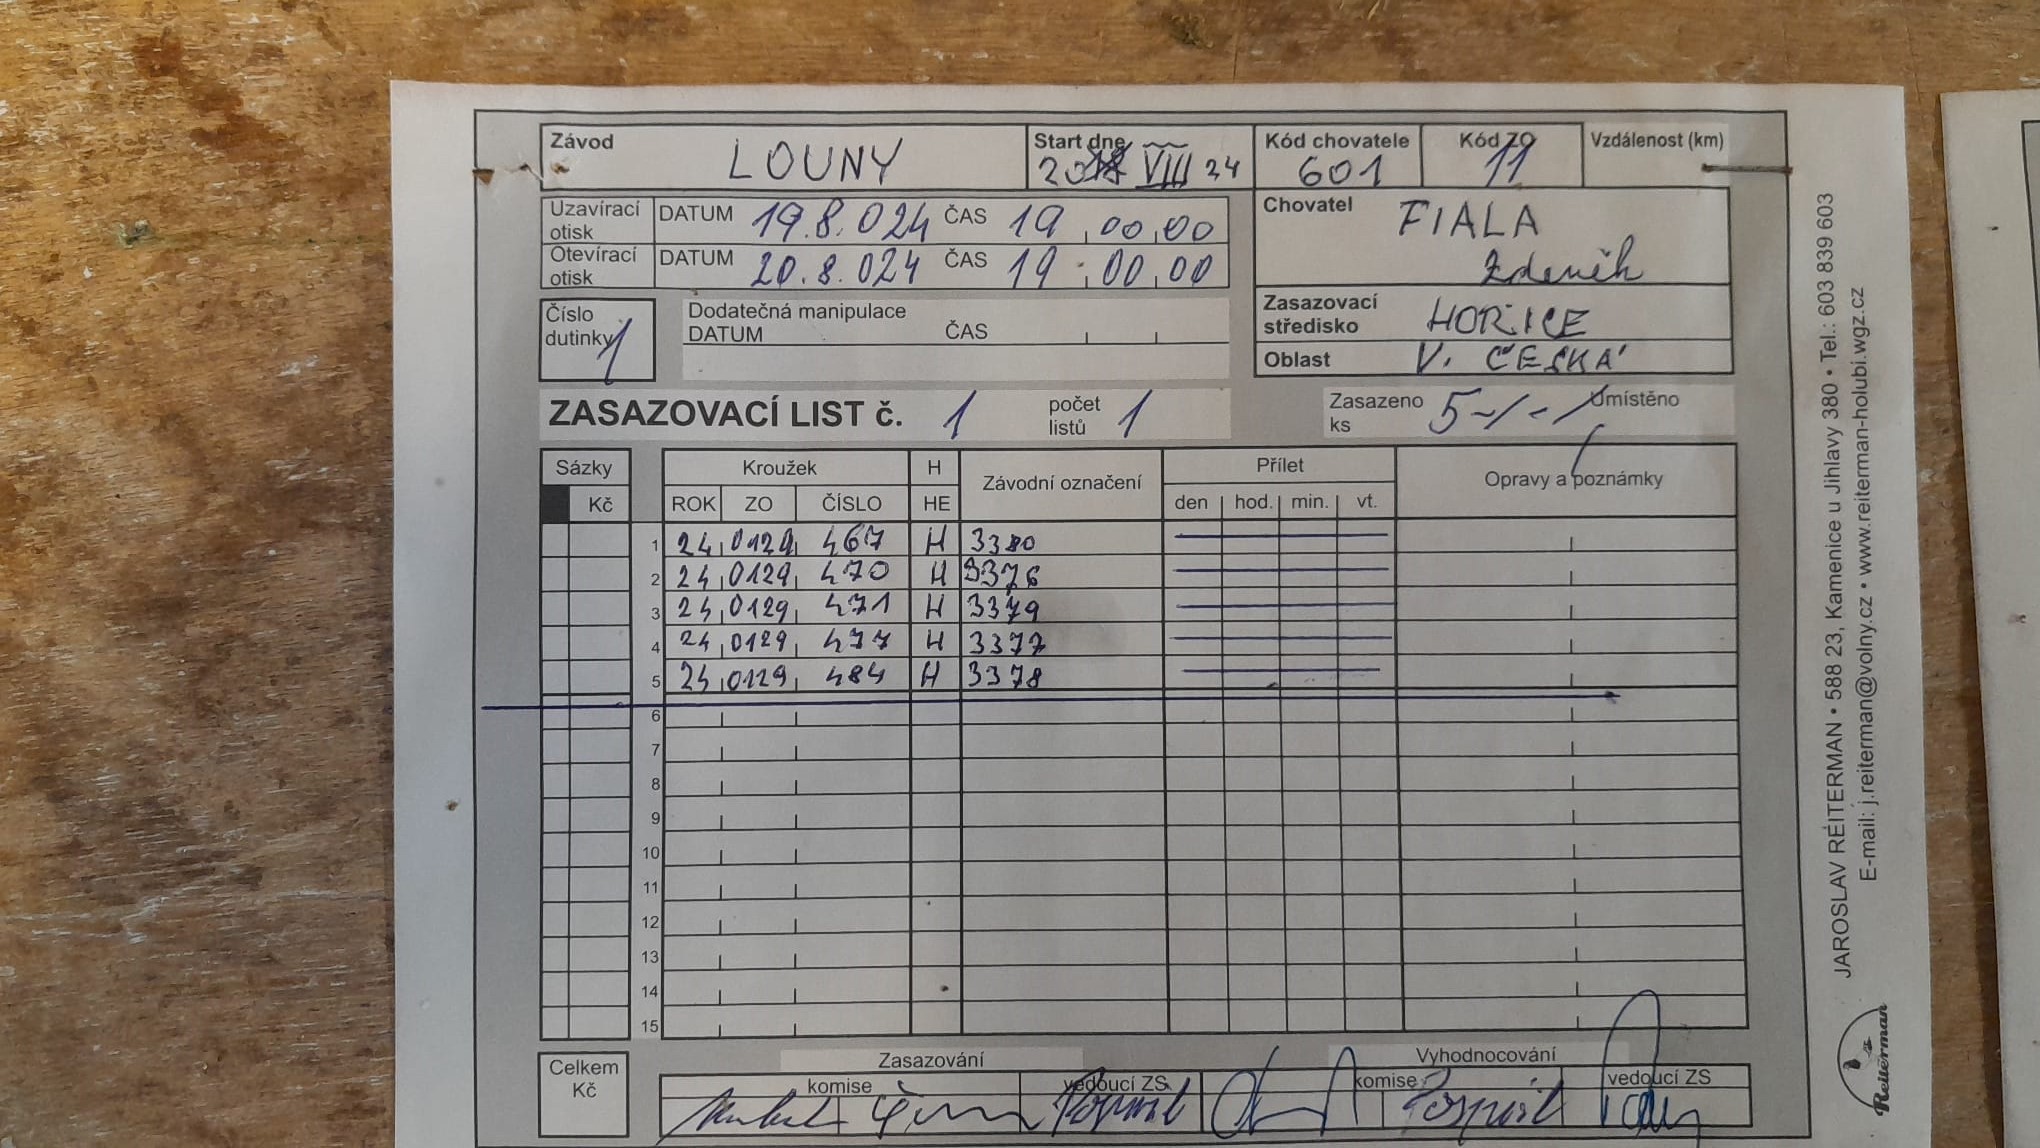 Závod LOUNY Start dne 20 VIII 24 Kód chovatele 601 Kód ZO 11 Vzdálenost (km)
Uzavírací otisk DATUM 19.8.024 ČAS 19,00,00
Otevírací otisk DATUM 20.8.024 ČAS 19:00,00
Chovatel FIALA
Zdeněk
Číslo dutinky 1
Dodatečná manipulace
DATUM ČAS
Zasazovací středisko HOŘICE
Oblast V. ČESKÁ
ZASAZOVACÍ LIST č. 1 počet listů 1 Zasazeno ks 5 Umístěno
Sázky Kroužek H Závodní označení Přílet Opravy a poznámky
Kč ROK ZO ČÍSLO HE den hod. min. vt.
1 24 0129 467 H 3380
2 24 0129 470 H 3376
3 24 0129 471 H 3379
4 24 0129 477 H 3377
5 24 0129 484 H 3378
6
7
8
9
10
11
12
13
14
15
Celkem Kč
Zasazování Vyhodnocování
komise vedoucí ZS komise vedoucí ZS
Pospíšil Pospíšil
JAROSLAV REITERMAN • 588 23, Kamenice u Jihlavy 380 • Tel.: 603 839 603
E-mail: j.reiterman@volny.cz • www.reiterman-holubi.wgz.cz
Reiterman